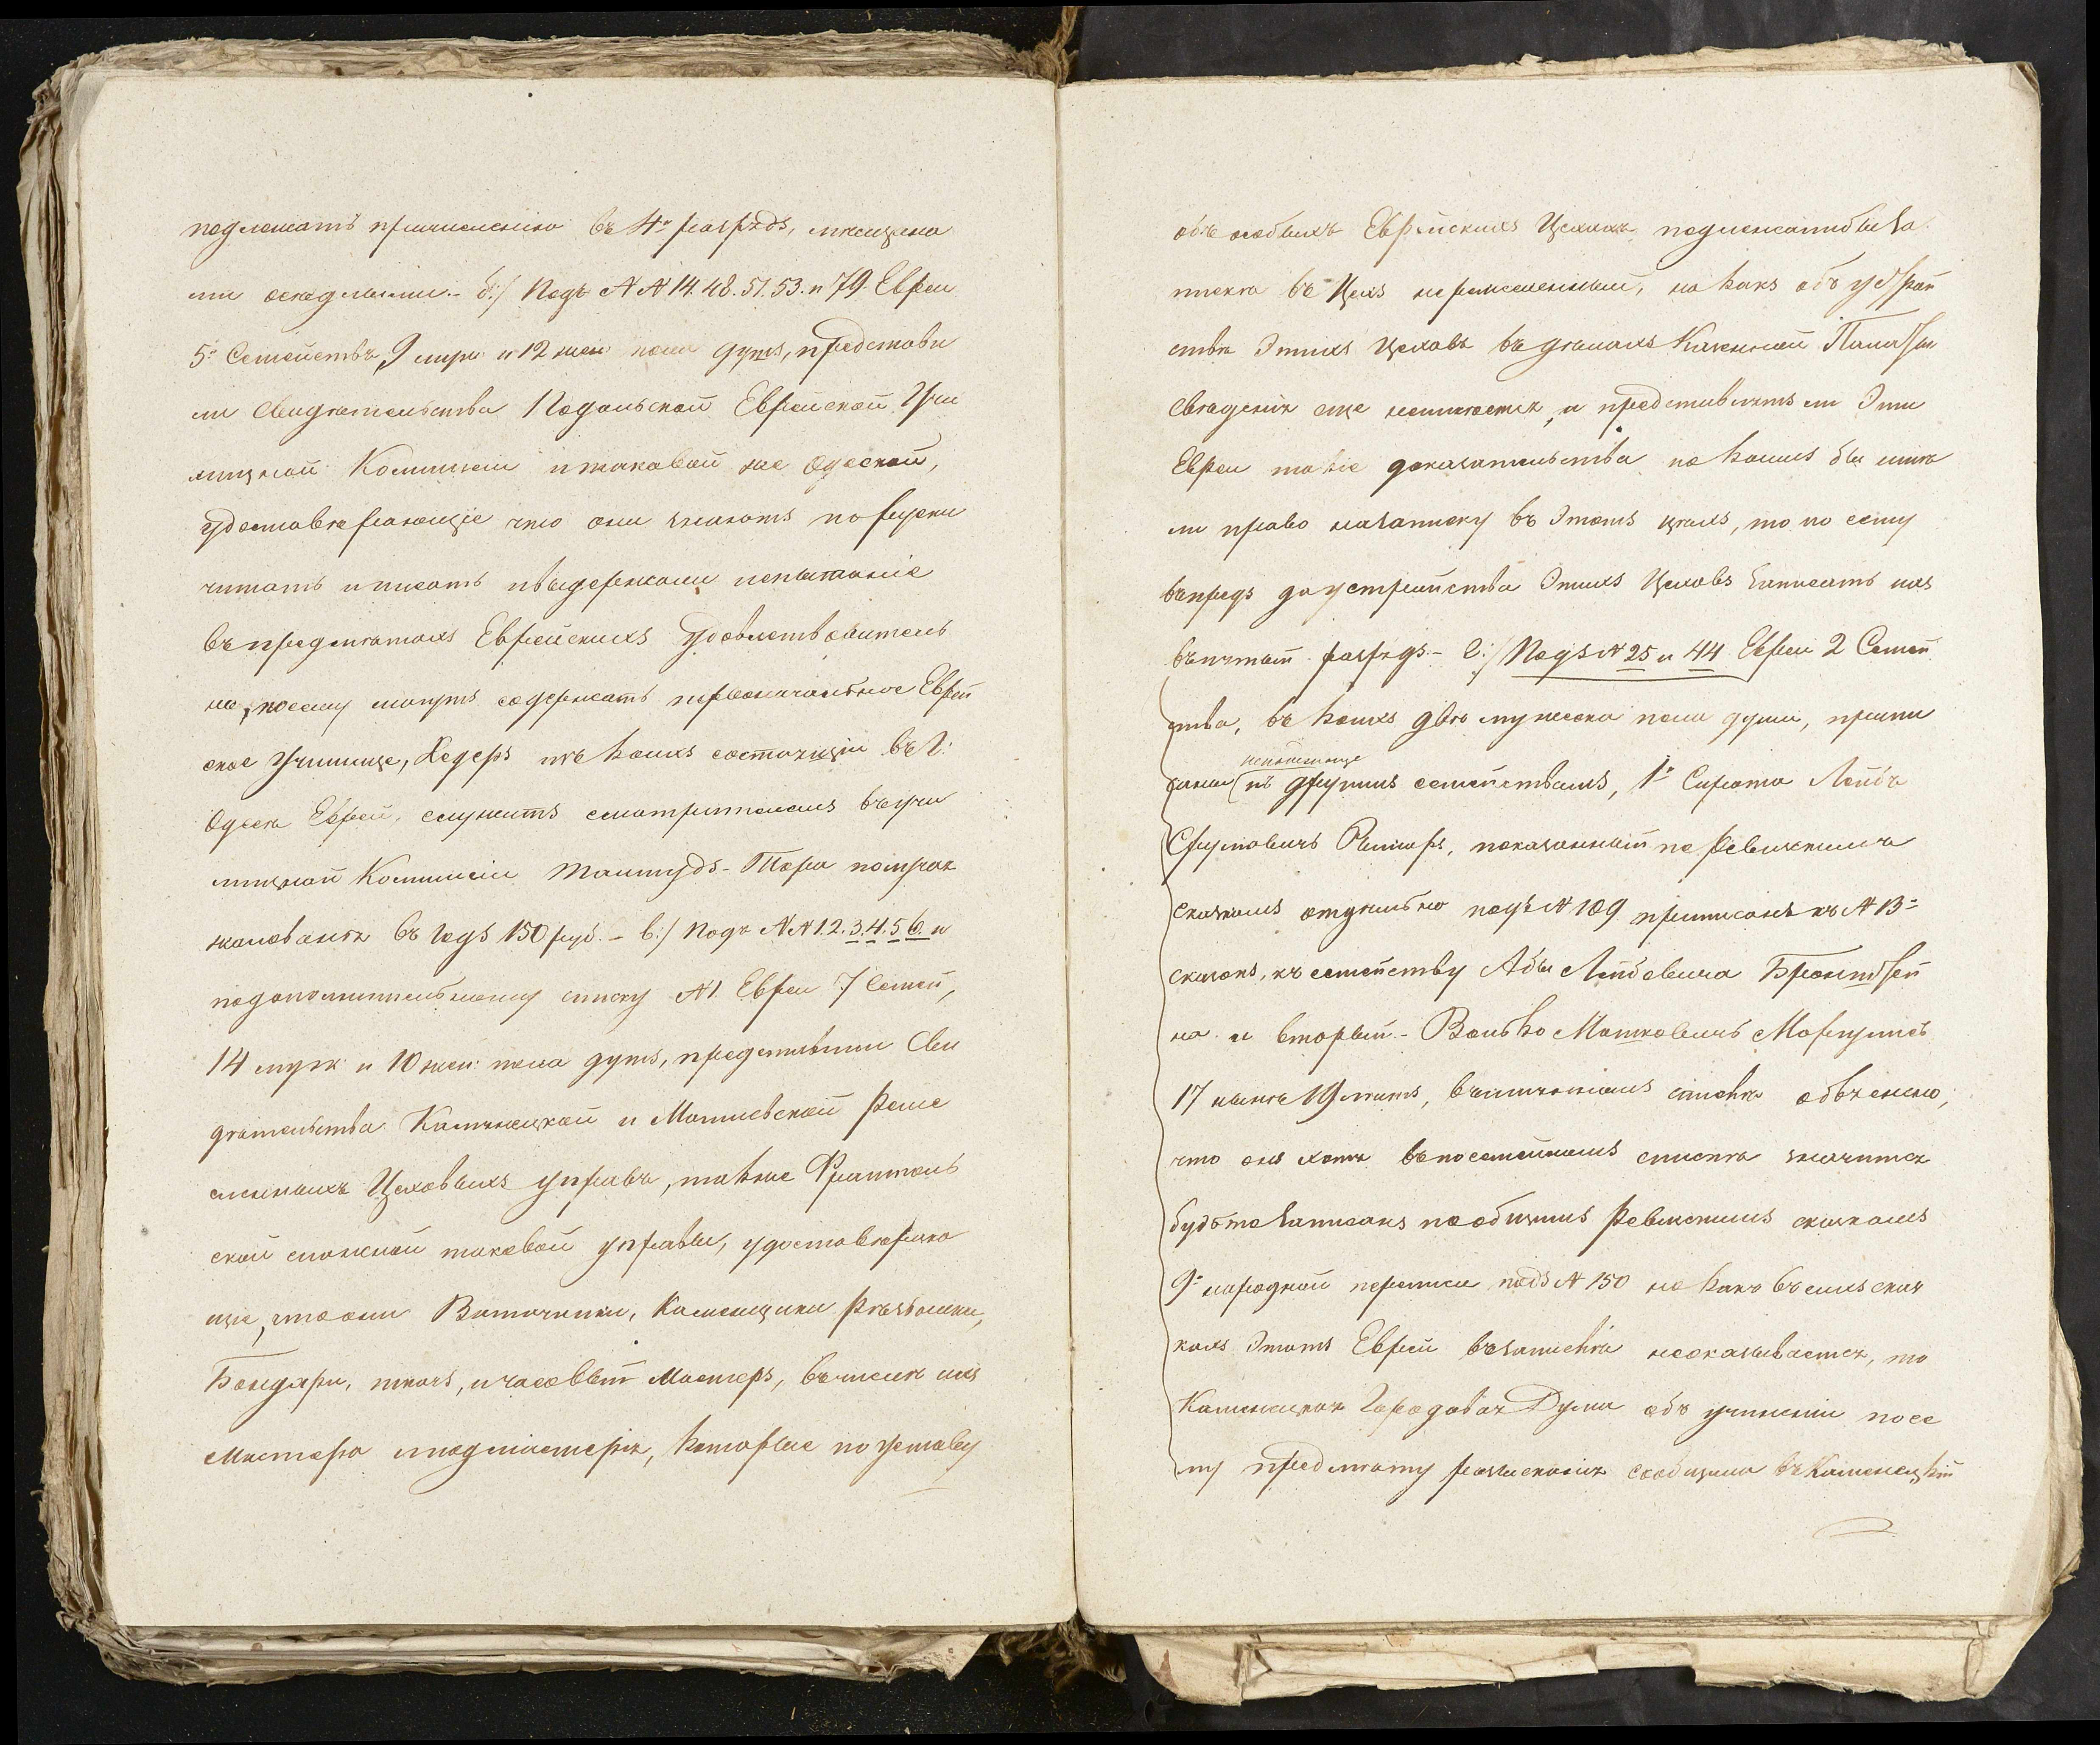 подлежатъ причисленію въ 4й разрядъ, мѣщана
ми осѣдлыми. – б:/ Подъ №№ 14. 48. 51. 53. и 79. Евреи
5ь Семействъ, 9 муж: и 12 жен: пола душъ, представи
ли свидѣтельства Подольской Еврейской Учи
лищной Коммисіи и таковой же Одеской,
удостовѣряющіе что они знаютъ по Руски
читать и писать и выдержали испытаніе
въ предметахъ Еврейскихъ удовлетворитель
но, посему могутъ содержать первоначальное Еврей
ское Училище, Хедеръ изъ коихъ состоящій въ Г:
Одесѣ Еврей, служитъ смотрителемъ въ учи
лищной Коммисіи Талмудъ-Тора получая
жалованья въ годъ 150 руб. – в:/ Подъ №№ 1. 2. 3. 4. 5. 6. и
подополнительному списку №1. Евреи 7 Семей,
14 муж: и 10 жен: пола душъ, представили Сви
дѣтельства Каменецкой и Могилевской Реме
сленныхъ Цеховыхъ управъ, также
ской сложной таковой управы, удостовѣряю
щіе, что они Каменщики Рѣзьбники,
Бондари, ткачъ, и часовый мастеръ, въ числѣ ихъ
Мастера и подмастерія, которые по Уставу
объ особыхъ Еврейскихъ Цехахъ подлежатъ бы за
пискѣ въ Цехъ неремесленный, но какъ объ устрой
ствѣ Этихъ Цеховъ въ дѣлахъ Казенной Палаты
свѣденія еще неимѣется, и представлятъ ли Эти
Евреи такіе доказательства по коимъ бы имѣ
ли право на записку въ Этотъ цехъ, то по сему
впредь до устройства Этихъ Цеховъ записать ихъ
въ пятый разрядъ. – г:/ Подъ № 25 и 44 Евреи 2 Семей
ства, въ коихъ двѣ мужеска пола души, припи
саны къ другимъ семействамъ, 1й Сирота Лейбъ
Сруловичъ показанный по Ревизскимъ
сказкамъ отдѣльно подъ № 109 приписанъ къ № 13ь
сказокъ, къ семейству Абы Лейбовича Бронштей
на и вторый – Волько Мошковичъ Маргулисъ
17 нынѣ 19 лѣтъ, въ спискѣ объяснено,
что онъ хотя въ посемейномъ спискѣ значится
будьто записанъ по общимъ Ревизскимъ сказкамъ
9й народной переписи подъ № 150 но какъ въ сихъ сказ
кахъ Этотъ Еврей въ запискѣ неоказывается, то
Каменецкая Городовая Дума объ учиненіи по се
му предмету разысканія сообщила въ Каменецкій